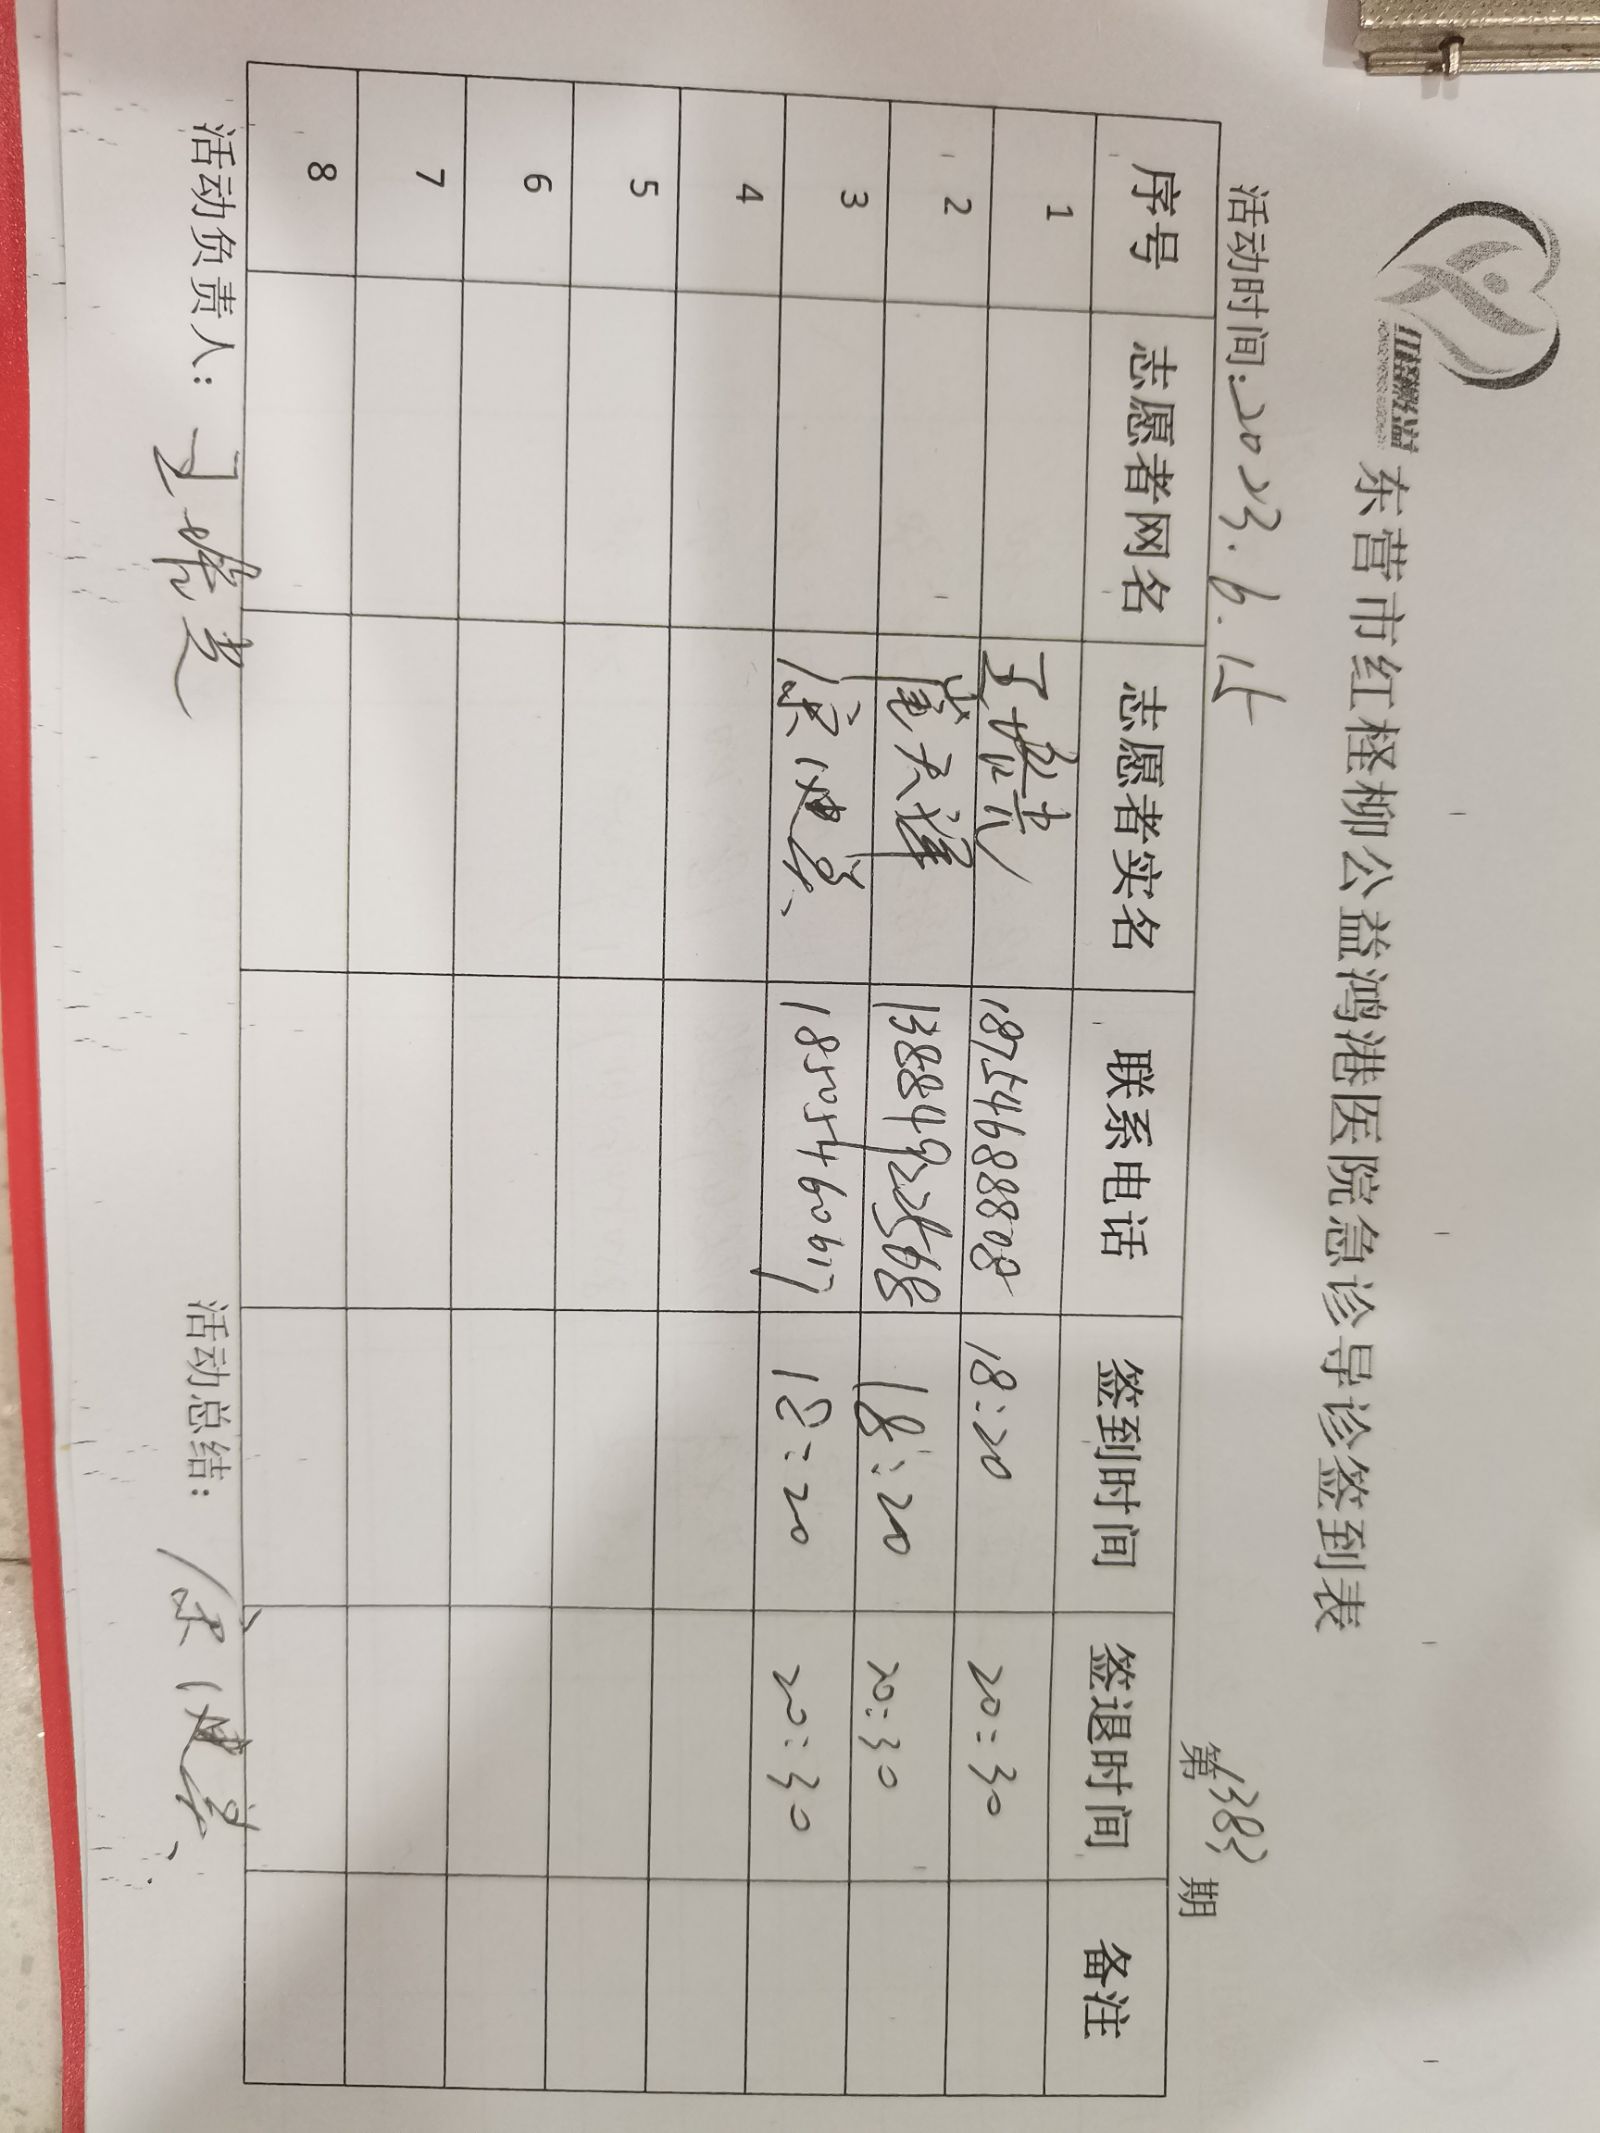 红柽柳公益
东营市红柽柳公益鸿港医院急诊导诊签到表
活动时间:2023.6.15 第1383期
序号 志愿者网名 志愿者实名 联系电话 签到时间 签退时间 备注
1 18754688808 18:20 20:30
2 13884922568 18:20 20:30
3 18505460617 18:20 20:30
4
5
6
7
8
活动负责人: 活动总结: